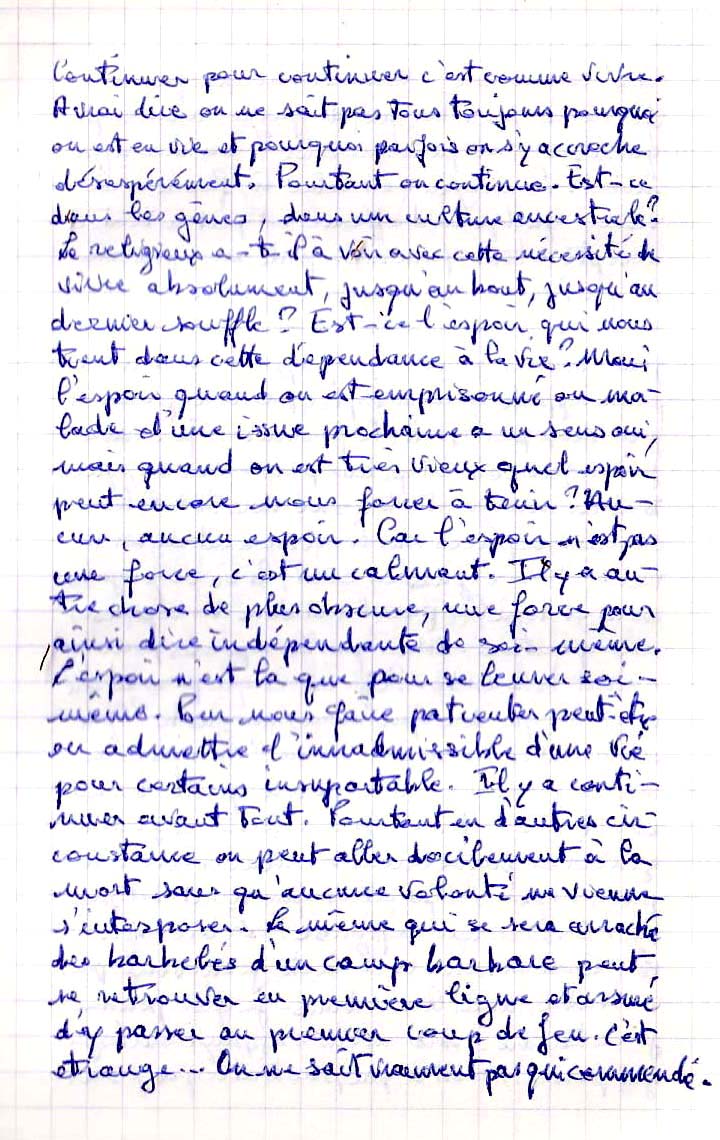 Continuer pour continuer c'est comme vivre.
A vrai dire on ne sait pas tous toujours pourquoi
on est en vie et pourquoi parfois on s'y accroche
désespérément. Pourtant on continue. Est-ce
dans les gênes, dans une culture ancestrale?
Le religieux a-t-il à voir avec cette nécessité de
vivre absolument, jusqu'au bout, jusqu'au
dernier souffle? Est-ce l'espoir qui nous
tient dans cette dépendance à la vie? Mais
l'espoir quand on est emprisonné ou ma-
lade d'une issue prochaine a un sens oui,
mais quand on est très vieux quel espoir
peut encore nous forcer à tenir? Au-
cun, aucun espoir. Car l'espoir n'est pas
une force, c'est un calmant. Il y a au-
tre chose de plus obscure, une force pour
ainsi dire indépendante de soi-même.
L'espoir n'est là que pour se leurrer soi-
même. Pour nous faire patienter peut-être
ou admettre l'innadmissible d'une vie
pour certains insuportable. Il y a conti-
nuer avant tout. Pourtant en d'autres cir-
constance on peut aller docilement à la
mort sans qu'aucune volonté ne vienne
s'interposer. Le même qui se sera arraché
des barbelés d'un camp barbare peut
se retrouver en première ligne et assuré
d'y passer au premier coup de feu. C'est
etrange... On ne sait vraiment pas qui commende.